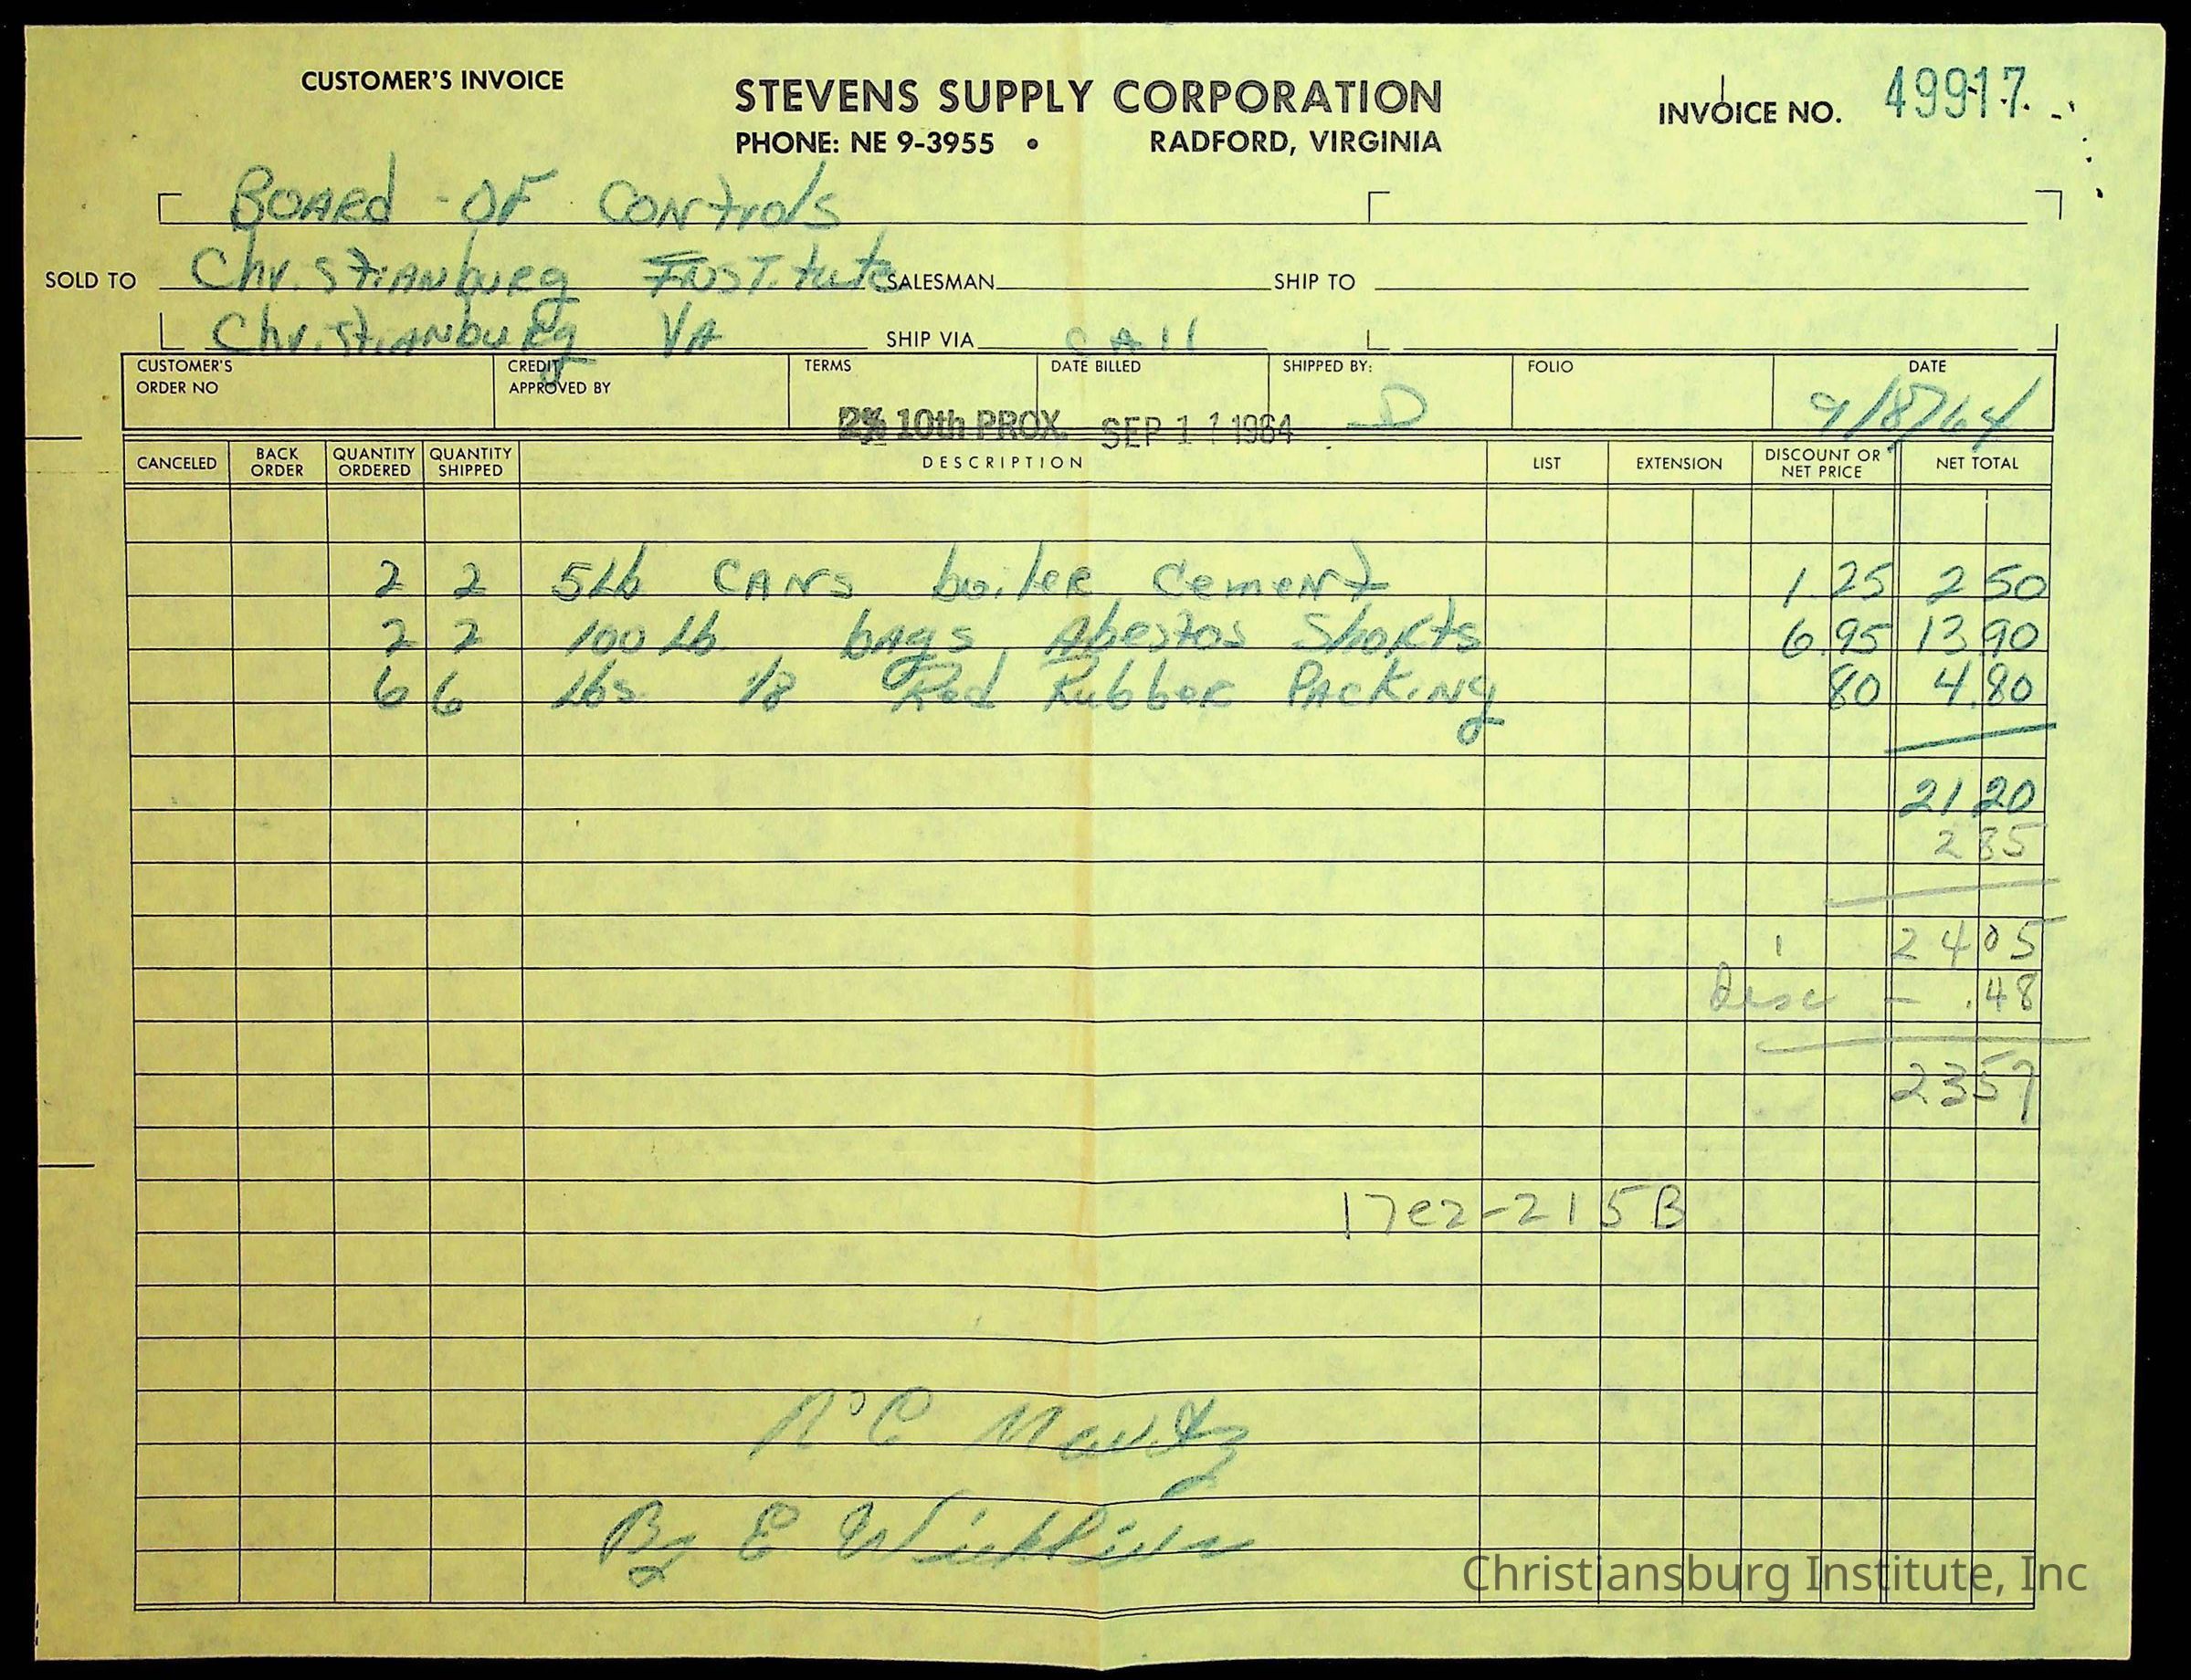 CUSTOMER'S INVOICE
STEVENS SUPPLY CORPORATION
INVOICE NO. 49917
PHONE: NE 9-3955 • RADFORD, VIRGINIA
BOARd - OF CONtrols
SOLD TO Christianburg Institute SALESMAN SHIP TO
Christianburg VA SHIP VIA CAll
CUSTOMER'S ORDER NO CREDIT APPROVED BY TERMS DATE BILLED SHIPPED BY: FOLIO DATE
2% 10th PROX. SEP 11 1964 D 9/8/64
CANCELED BACK ORDER QUANTITY ORDERED QUANTITY SHIPPED DESCRIPTION LIST EXTENSION DISCOUNT OR NET PRICE NET TOTAL
2 2 5Lb CANs boileR CemeNt 1.25 2 50
2 2 100 Lb bAgs Abestos Shorts 6.95 13 90
6 6 Lbs 1/8 Red Rubber PAckiNg 80 4.80
21 20
2 85
24 05
Disc - .48
23 57
17e2-215B
By E
Christiansburg Institute, Inc